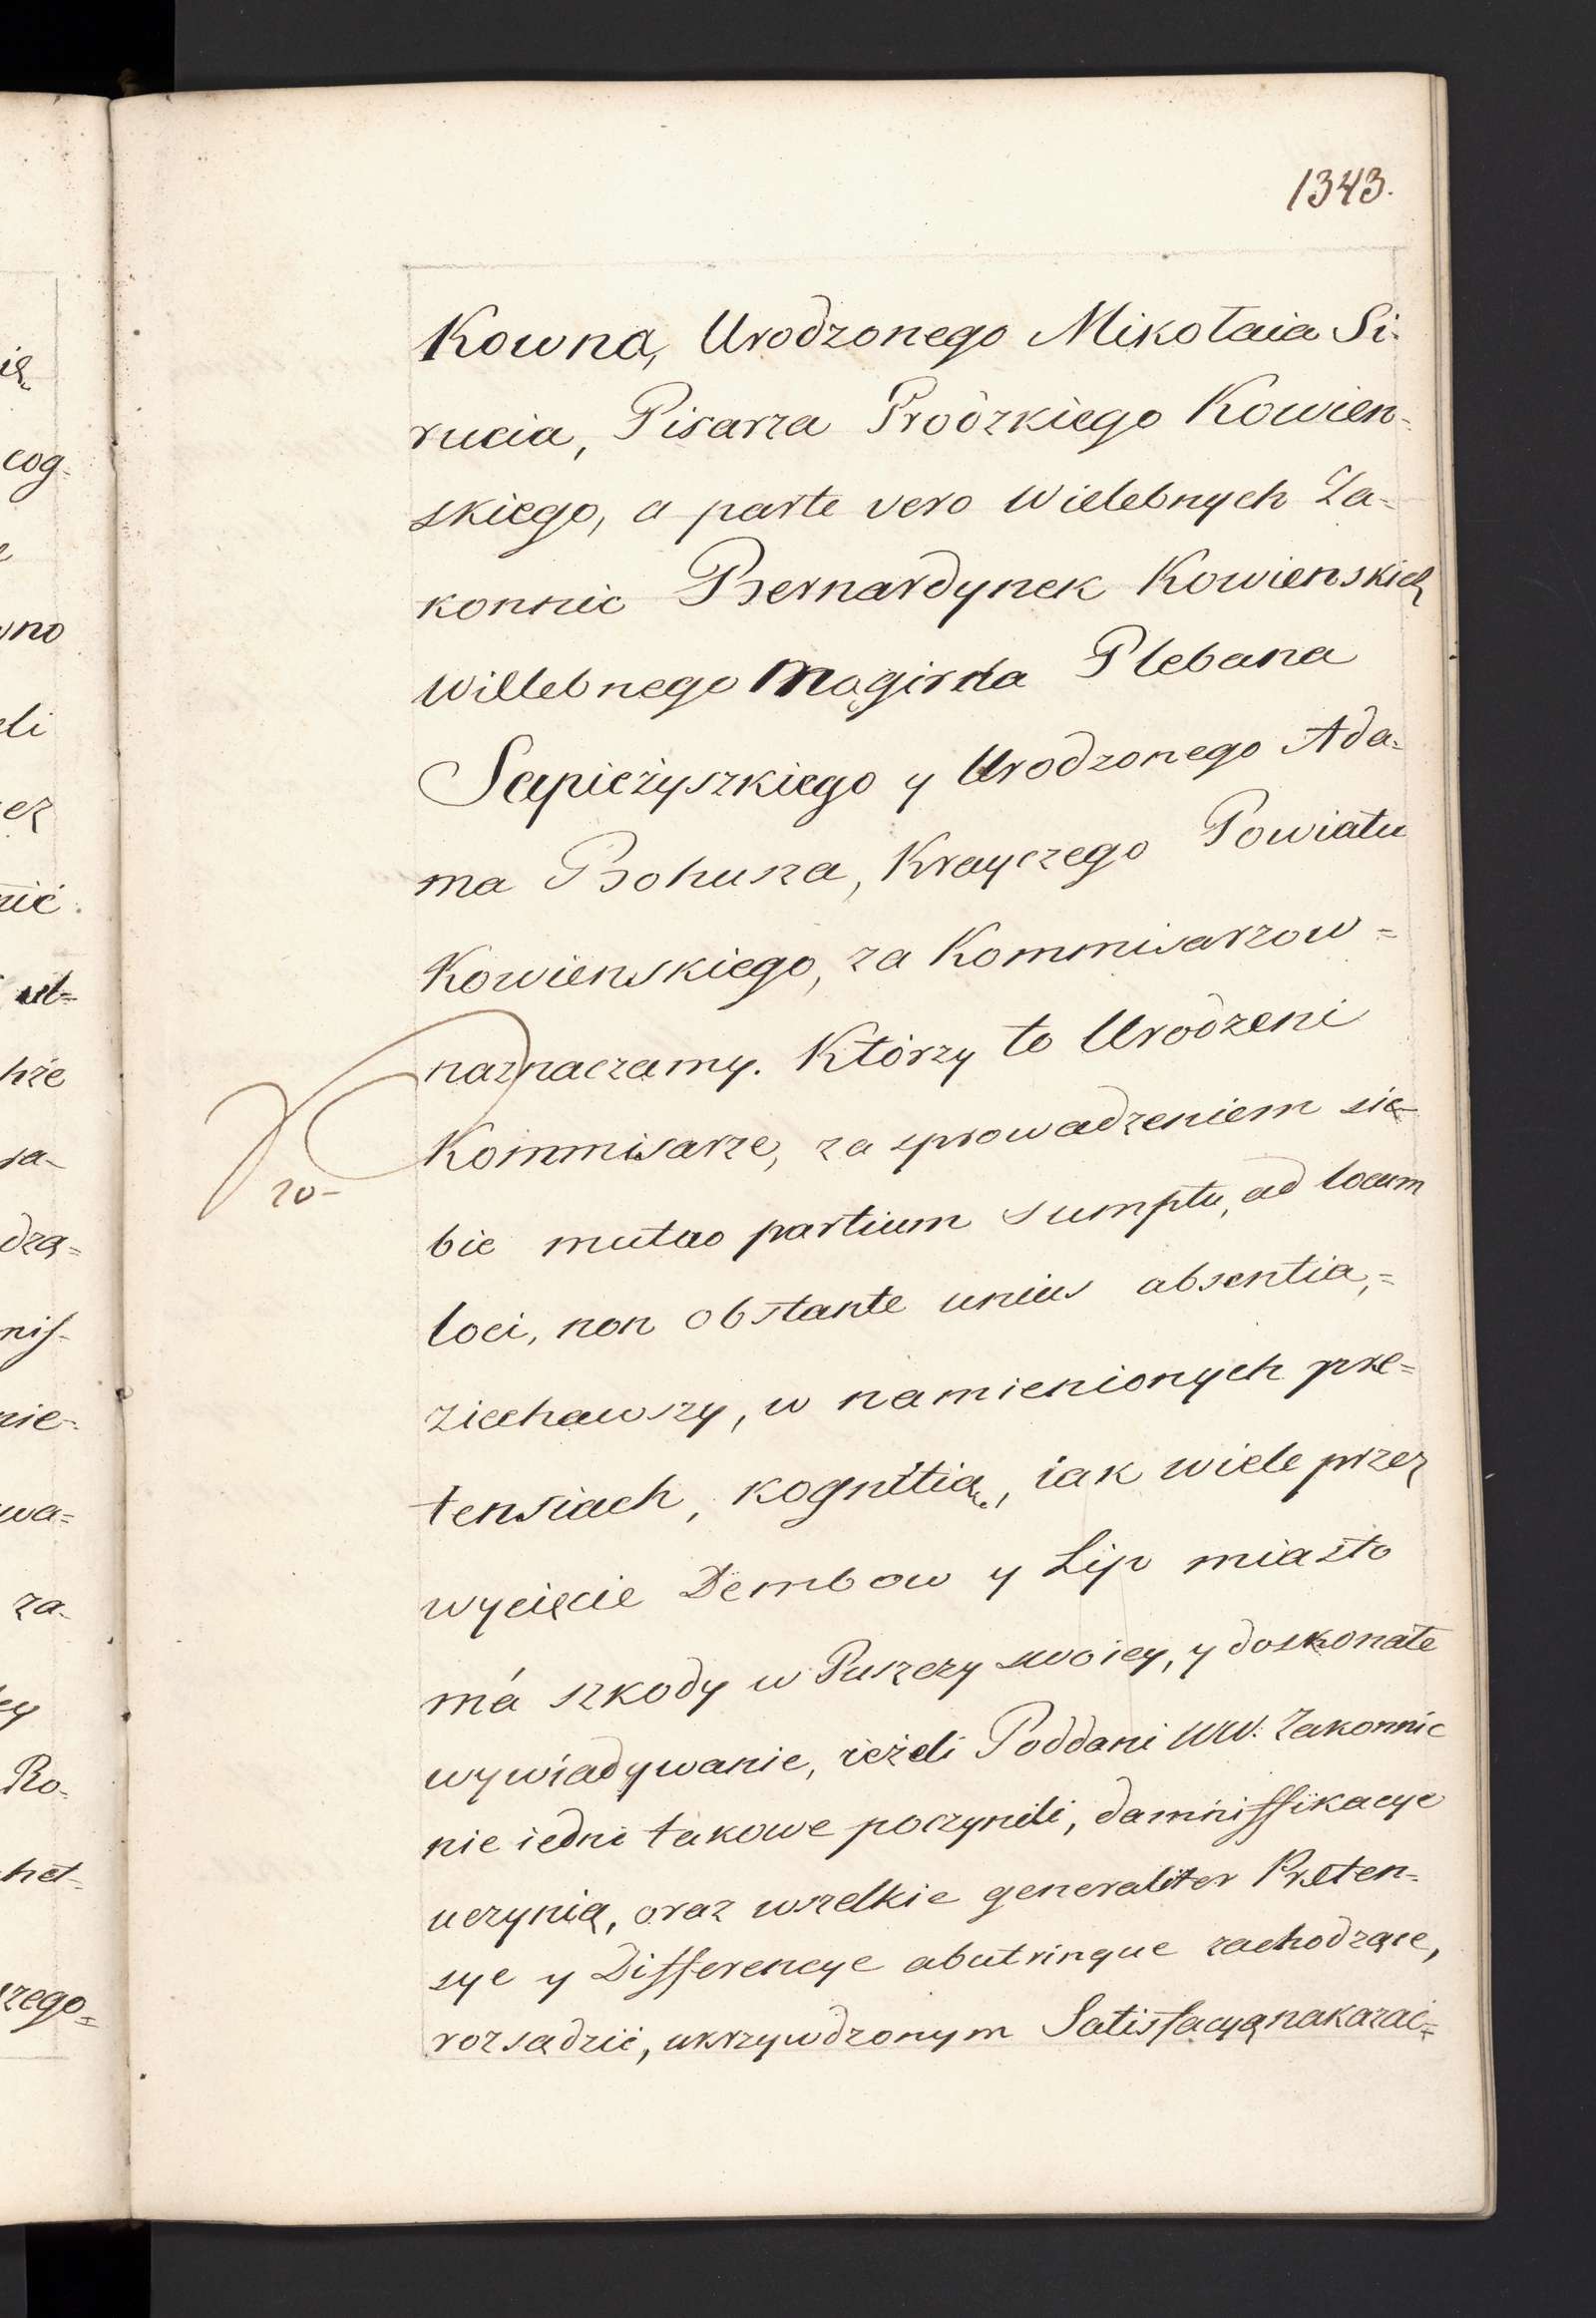 1343.
Kowna, Urodzonego Mikołaia Si-
rucia, Pisarza Grodzkiego Kowien-
skiego, a parte vero Wielebnych Za-
konnic Bernardynek Kowienskich
Willebnego Mogirda Plebana
Sapieżyszkiego y Urodzonego Ada-
ma Bohusza, Krayczego Powiatu
Kowienskiego, za Kommisarzow =
naznaczamy. Którzy to Urodzeni
Kommisarze, za sprowadzeniem sie-
bie mutuo partium sumptu, ad locum
loci, non obstante unius absentia, =
ziechawszy, w namienionych pre=
tensiach, kognitią, iak wiele przez
wycięcie Dembow y Lip miasto
má szkody w Puszczy swoiey, y doskonałe
wywiadywanie, ieżeli Poddani WW. Zakonnic
nie iedni takowe poczynili, damniffikacye
uczynią, oraz wszelkie generaliter Preten-
sye y Differencye abutrinque zachodzące,
rozsądzić, ukrzywdzonym Satisfacyą nakazać=
ię
cog-
wno
eli
ez
nić
ut=
hże
sa-
dzą=
nis-
nie-
wa=
za-
ey
Ro-
het-
zego=